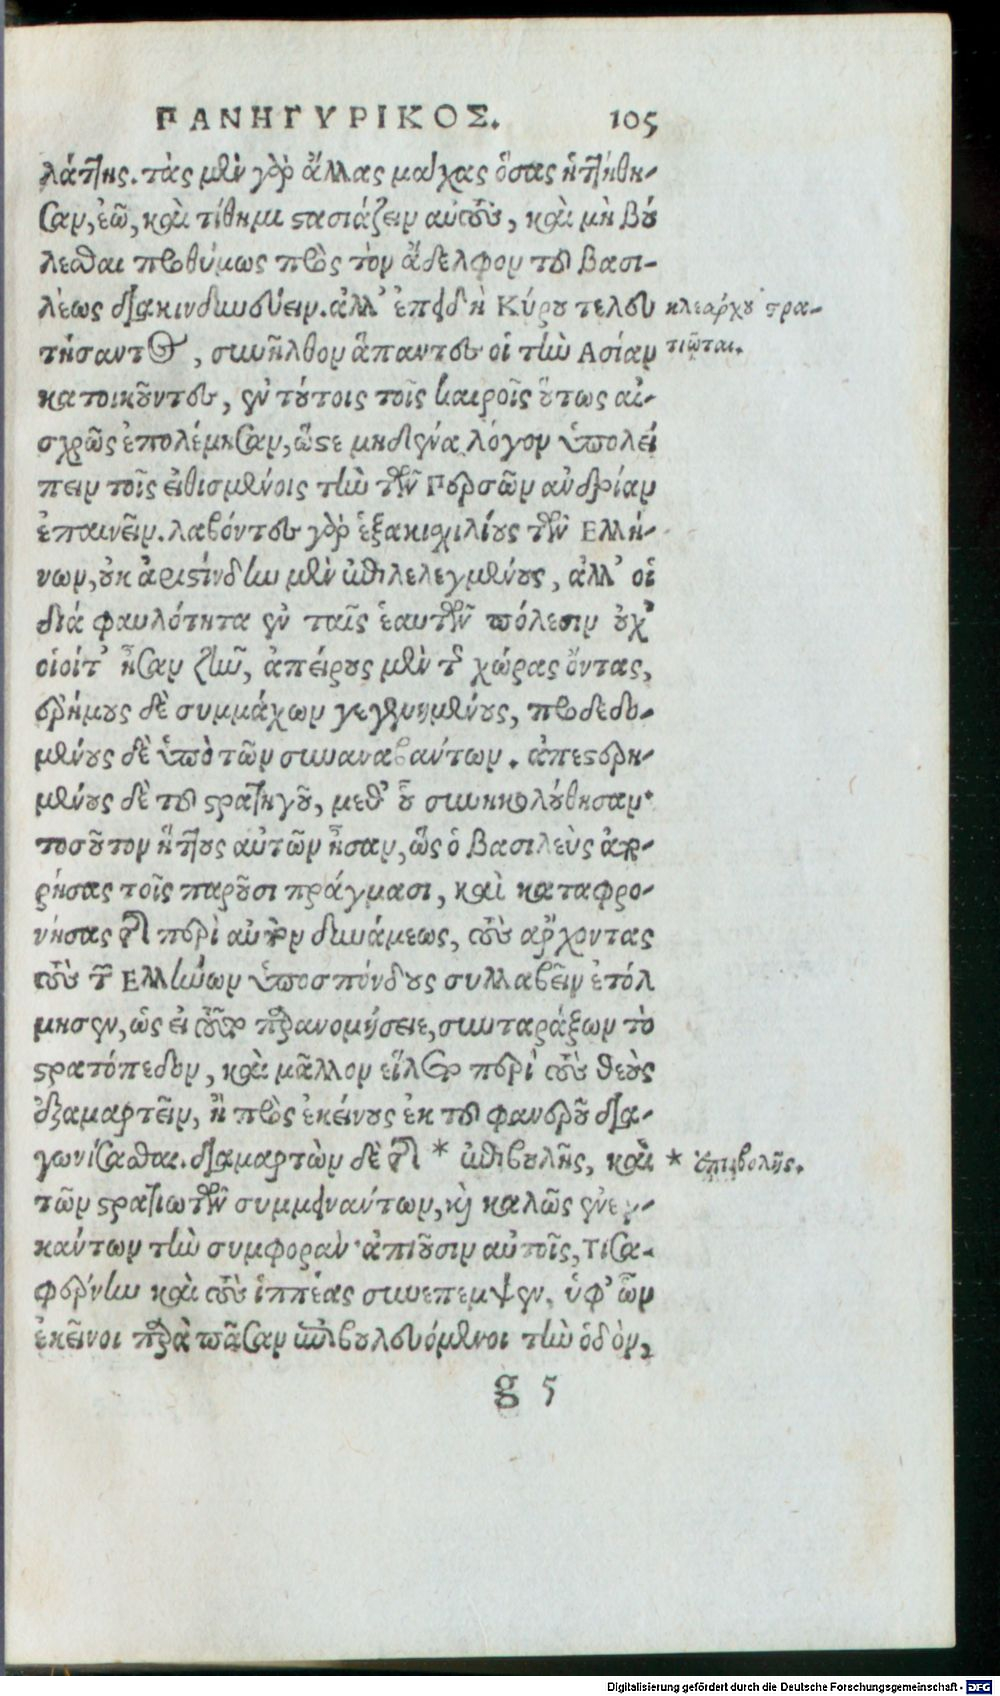 ΠΑΝΗΓΥΡΙΚΟΣ. 105
λάττης. τὰς μὲν γὰρ ἄλλας μάχας ὅσας ἡττήθη-
σαν, ἐῶ, καὶ τίθημι στασιάζειν αὐτοὺς, καὶ μὴ βού
λεσθαι προθύμως πρὸς τὸν ἀδελφὸν τοῦ βασι-
λέως διακινδυνεύειν. ἀλλ' ἐπειδὴ Κύρου τελευ
κλεάρχου στρα-
τήσαντος, συνῆλθον ἅπαντες οἱ τὴν Ασίαν
τιῶται.
κατοικοῦντες, ἐν τούτοις τοῖς καιροῖς οὕτως αἰ-
σχρῶς ἐπολέμησαν, ὥστε μηδένα λόγον ὑπολεί
πειν τοῖς εἰθισμένοις τὴν τῶν Περσῶν ἀνδρίαν
ἐπαινεῖν. λαβόντες γὰρ ἑξακισχιλίους τῶν Ελλή-
νων, οὐκ ἀριστίνδην μὲν ἐπιλελεγμένους, ἀλλ' οἳ
διὰ φαυλότητα ἐν ταῖς ἑαυτῶν πόλεσιν οὐχ'
οἷοίτ' ἦσαν ζῆν, ἀπείρους μὲν τῆς χώρας ὄντας,
ἐρήμους δὲ συμμάχων γεγενημένους, προδεδο-
μένους δὲ ὑπὸ τῶν συναναβάντων. ἀπεστερη-
μένους δὲ τοῦ στρατηγοῦ, μεθ' οὗ συνηκολούθησαν·
τοσοῦτον ἥττους αὐτῶν ἦσαν, ὥς ὁ βασιλεὺς ἀπο-
ρήσας τοῖς παροῦσι πράγμασι, καὶ καταφρο-
νήσας τῆς περὶ αὑτὸν δυνάμεως, τοὺς ἄρχοντας
τοὺς τῶν Ελλήνων ὑποσπόνδους συλλαβεῖν ἐτόλ
μησεν, ὡς εἰ τοῦτο παρανομήσειε, συνταράξων τὸ
στρατόπεδον, καὶ μᾶλλον εἵλετο περὶ τοὺς θεοὺς
ἐξαμαρτεῖν, ἢ πρὸς ἐκείνους ἐκ τοῦ φανεροῦ δια-
γωνίσασθαι. διαμαρτὼν δὲ τῆς * ἐπιβουλῆς, καὶ
* ἐπιβολῆς.
τῶν στρατιωτῶν συμμεινάντων, καὶ καλῶς ἐνεγ-
κάντων τὴν συμφορὰν· ἀπιοῦσιν αὐτοῖς, Τισα-
φέρνην καὶ τοὺς ἱππέας συνέπεμψεν, ὑφ' ὧν
ἐκεῖνοι παρὰ πᾶσαν ἐπιβουλευόμενοι τὴν ὁδὸν,
g 5
Digitalisierung gefördert durch die Deutsche Forschungsgemeinschaft - DFG